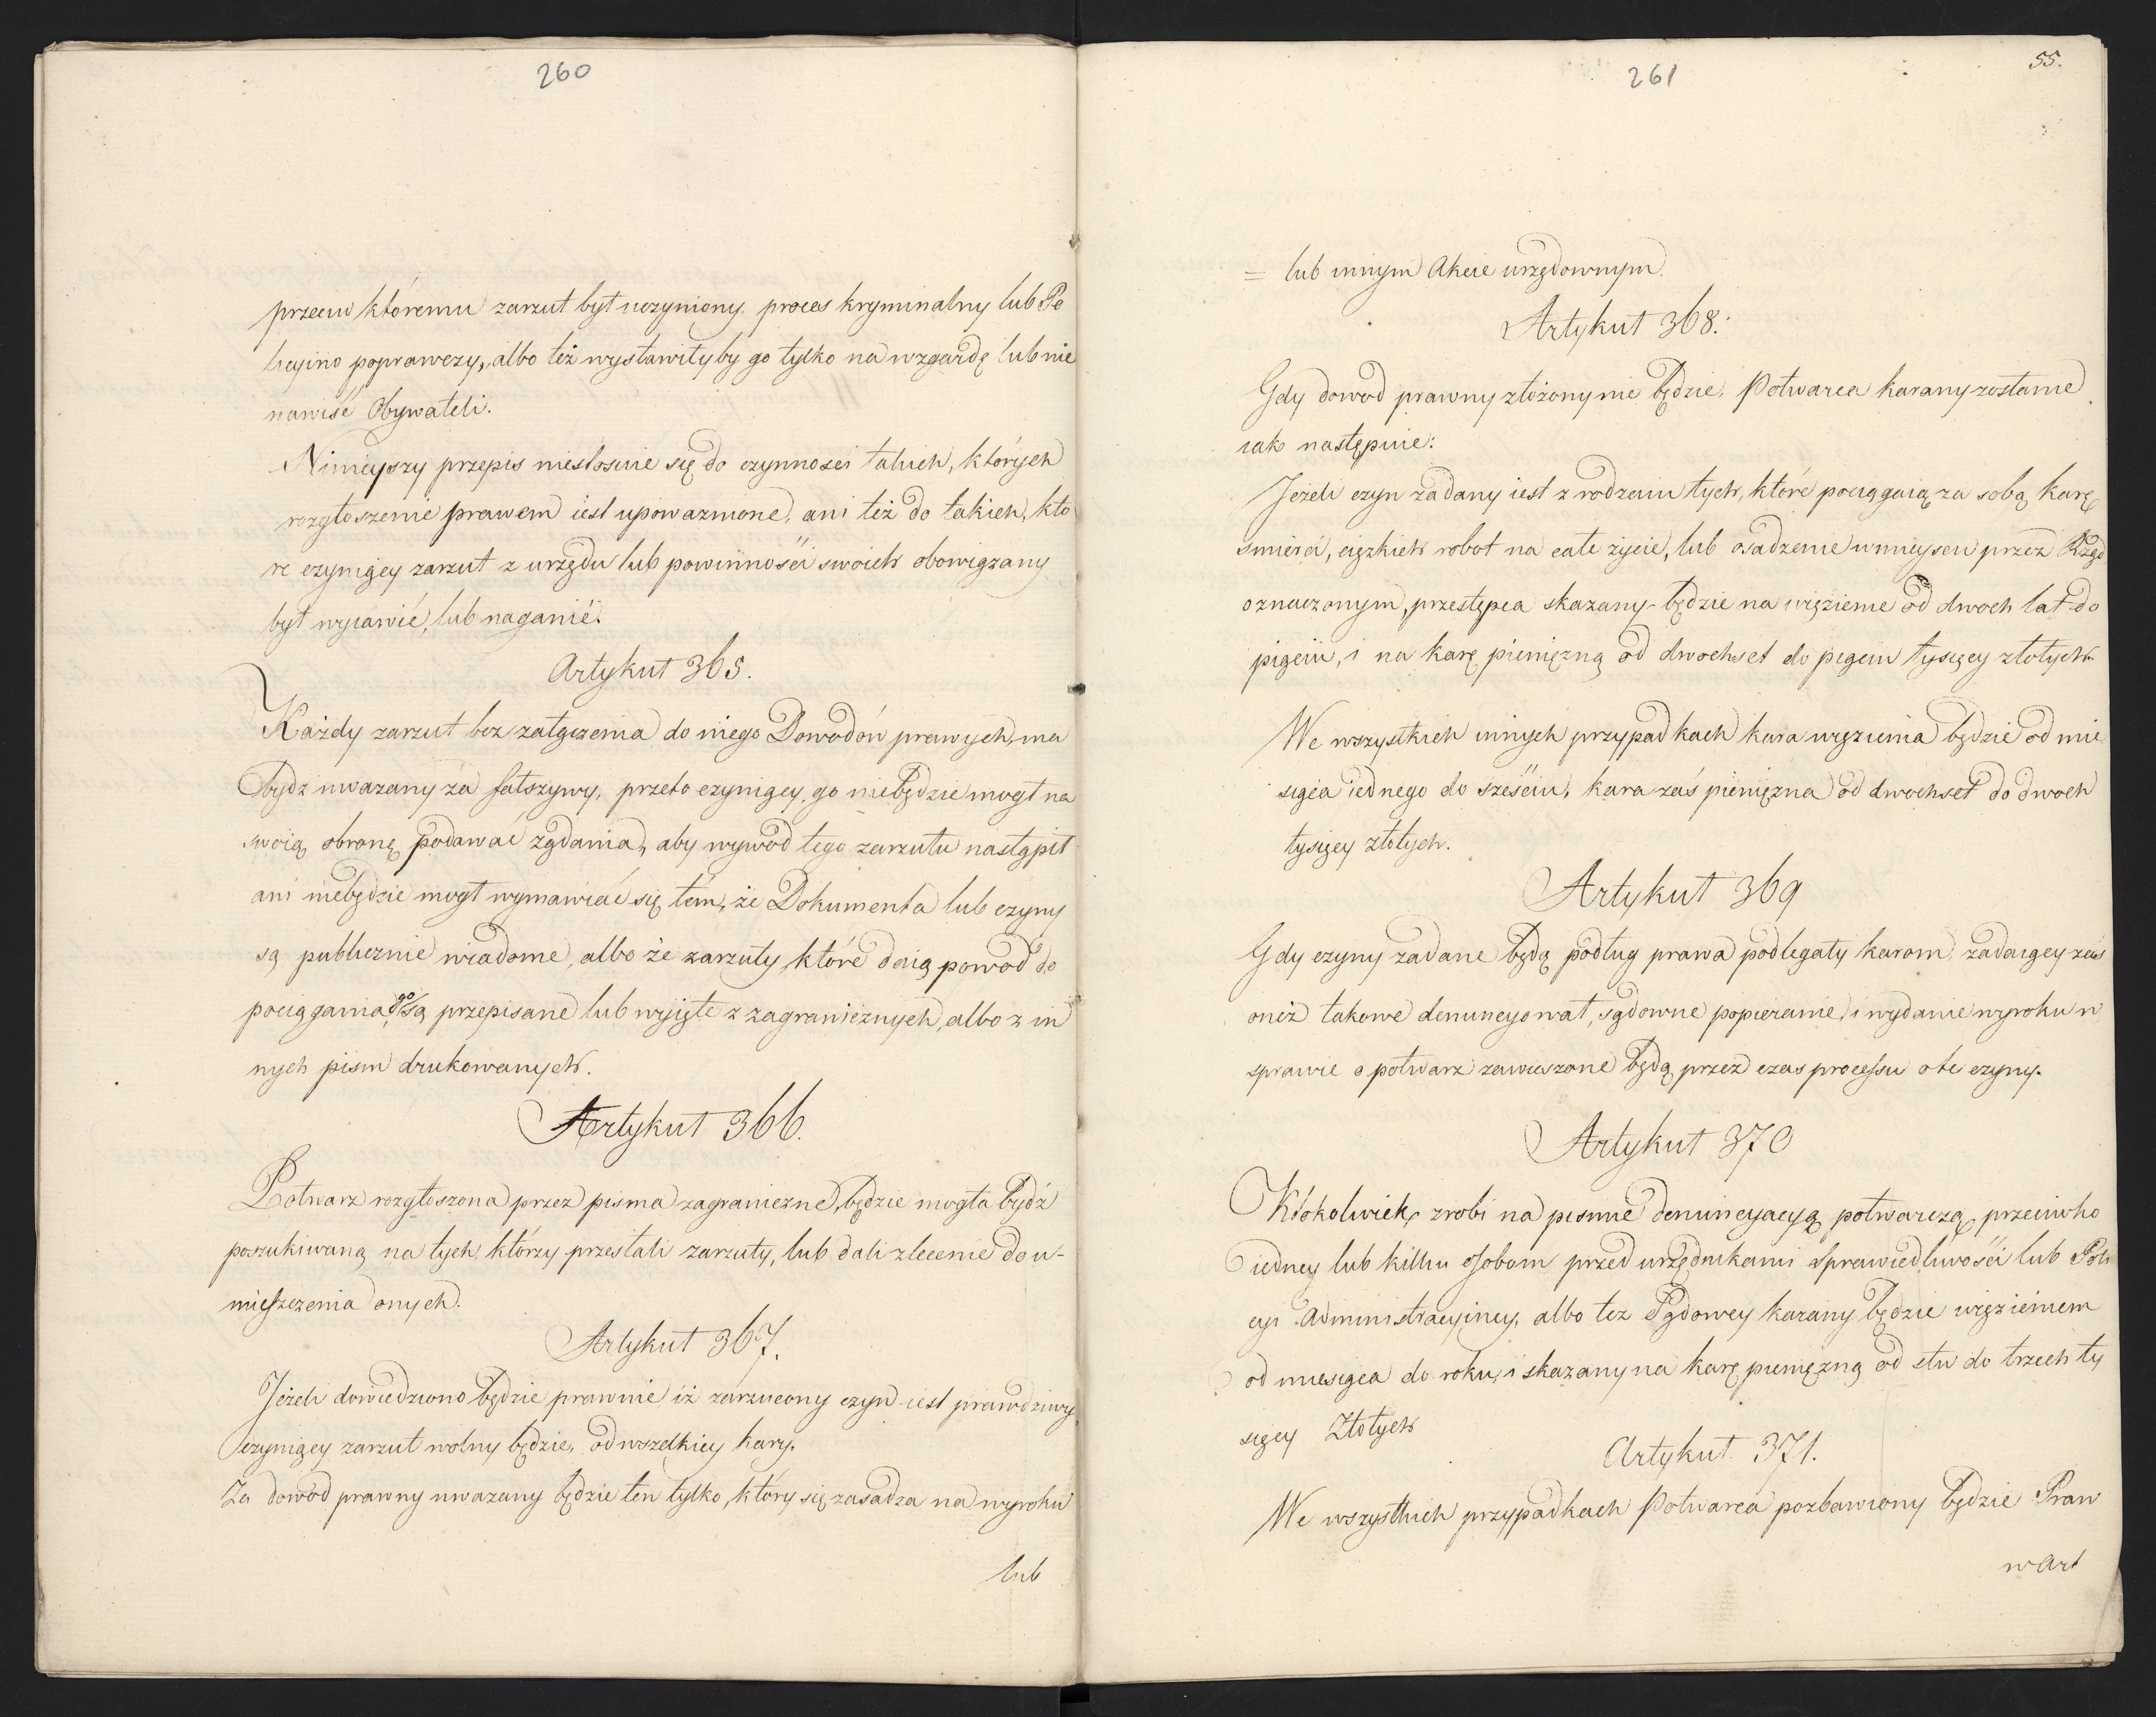 260
przeciw któremu zarzut był uczyniony. proces kryminalny lub Po
licyino poprawczy, albo też wystawiłyby go tylko na wzgardę lub nie
nawiść Obywateli.
Ninieyszy przepis niestosuie się do czynnosci takich, których
rozgłoszenie prawem iest upoważnione, ani też do takich, kto
re czyniący zarzut z urzędu lub powinności swoich obowiązany
był wyiawić, lub naganić.
Artykuł 365.
Każdy zarzut bez załączenia do niego Dowodów prawych, ma
bydz uważany za fałszywy, przeto czyniący go niebędzie mogł na
swoią obronę podawać żądania, aby wywod tego zarzutu nastąpił
ani niebędzie mogł wymawiać się tém, że Dokumenta lub czyny
są publicznie wiadome, albo że zarzuty, które daią powod do
pociągania go są przepisane lub wyięte z zagranicznych, albo z in
nych pism drukowanych.
Artykuł 366.
Potwarz rozgłoszona przez pisma zagraniczne, będzie mogła bydź
poszukiwaną na tych, którzy przesłali zarzuty, lub dali zlecenie do u-
mieszczenia onych.
Artykuł 367.
Jeżeli dowiedziono będzie prawnie iż zarzucony czyn iest prawdziwy
czyniący zarzut wolny będzie, od wszelkiey kary.
Za dowod prawny uważany będzie ten tylko, który się zasadza na wyroku
lub
55.
261
= lub innym Akcie urzędownym.
Artykuł 368.
Gdy dowod prawny złożony nie będzie, Potwarca karany zostanie
iako następuie:
Jeżeli czyn zadany iest z rodzaiu tych, które pociągaią za sobą karę
smierci, ciężkich robot na całe życie, lub osadzenie w mieyscu przez Rząd
oznaczonym, przestępca skazany będzie na więzienie od dwoch lat do
pięciu, i na karę pieniężną od dwochset do pięciu tysięcy złotych.
We wszystkich innych przypadkach kara więzienia będzie od mie
siąca iednego do sześciu, kara zaś pieniężna od dwochset do dwoch
tysięcy złotych.
Artykuł 369
Gdy czyny zadane będą podług prawa podlegały karom, zadaiący zaś
oneż takowe denuncyował, sądowne popieranie, i wydanie wyroku w
sprawie o potwarz zawieszone będą przez czas processu o te czyny.
Artykuł 370
Ktokolwiek zrobi na pismie denuncyacyą potwarczą, przeciwko
iedney lub kilku osobom przed urzędnikami sprawiedliwości lub Poli
cyi Administracyiney, albo też Sądowey karany będzie więzieniem
od miesiąca do roku, i skazany na karę pieniężną od stu do trzech ty
sięcy Złotych
Artykuł 371.
We wszystkich przypadkach Potwarca pozbawiony będzie Praw
w Art